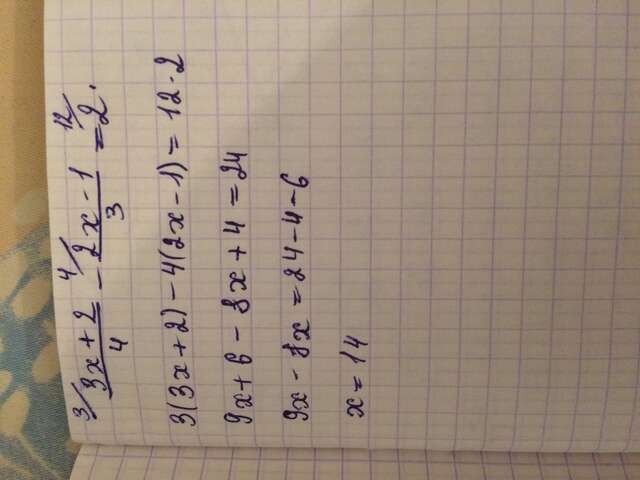 3/ (3x + 2)/4 - 4/ (2x - 1)/3 = 12/ 2.
3(3x + 2) - 4(2x - 1) = 12 · 2
9x + 6 - 8x + 4 = 24
9x - 8x = 24 - 4 - 6
x = 14